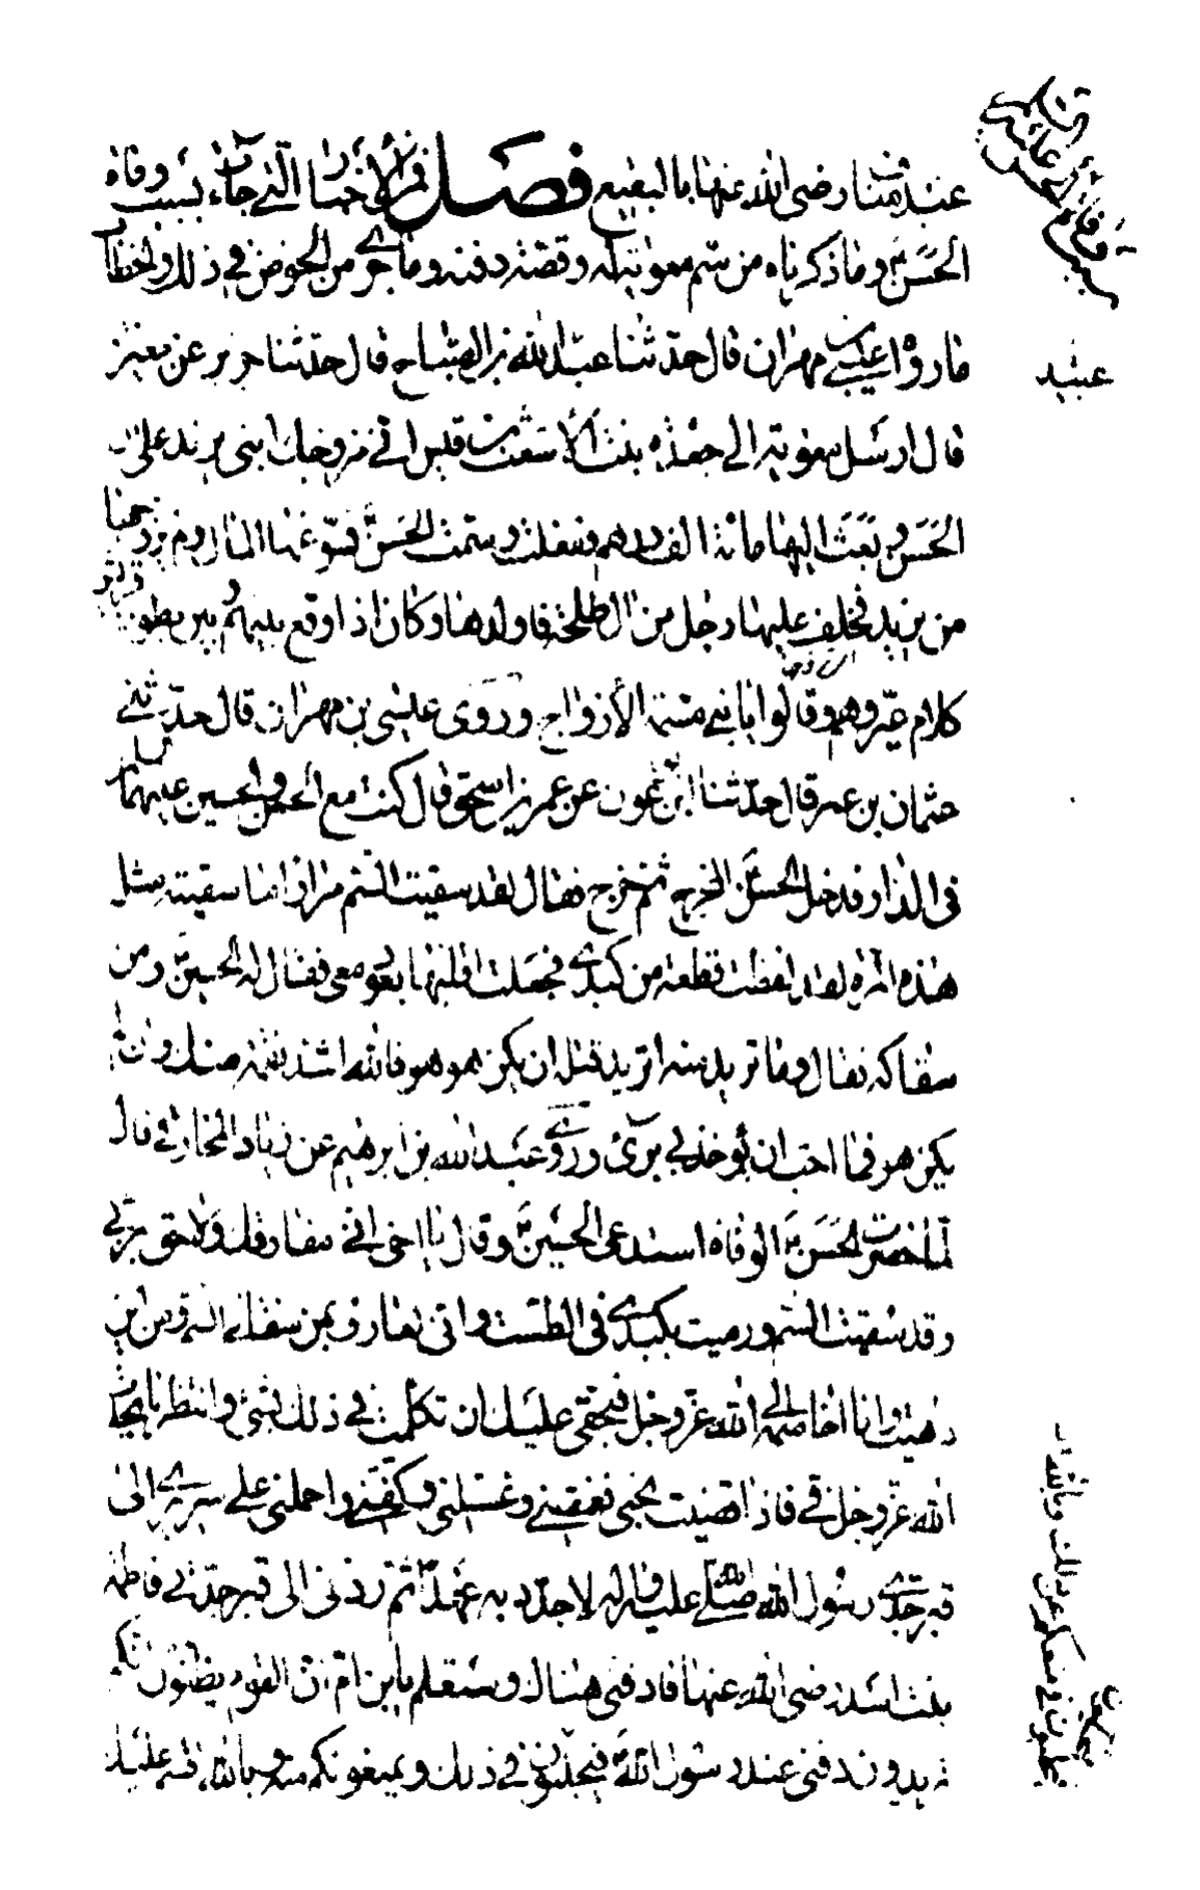 عبد مناف رضی الله عنها بالبقیع فصل فمن الأخبار التي جاءت بسبب وفاة
الحسن ع وما ذكرناه من سم معوية له وقصة دفنه وما جرى من الخوض في ذلك والخطاب
ما رواه عيسى بن مهران قال حدثنا عبيد الله بن الصباح قال حدثنا جرير عن مغيرة
قال ارسل معوية الى جعدة بنت الأشعث بن قيس اني مزوجك ابني يزيد على ان
الحسن وبعث اليها مائة الف درهم ففعلت وسمت الحسن ع فسوغها المال ولم يزوجها
من يزيد فخلف عليها رجل من ال طلحة فاولدها وكان اذا وقع بينهم وبين بطون قريش
كلام عيروهم وقالوا يا بني مسمة الأزواج وروى عيسى بن مهران قال حدثني
عثمان بن عمر قال حدثنا ابن عون عن عمر بن اسحق قال كنت مع الحسن والحسين عليهما السلام
في الدار فدخل الحسن ع المخرج ثم خرج فقال لقد سقيت السم مرارا ما سقيته مثل
هذه المرة لقد لفظت قطعة من كبدي فجعلت اقلبها بعود معي فقال له الحسين ع ومن
سقاكه فقال وما تريد منه اتريد قتله ان يكن هو هو فالله اشد نقمة منك وان لم
يكن هو فما احب ان يؤخذ بي برئ وروى عبد الله بن ابرهيم عن زياد المخارقي قال
لما حضرت الحسن ع الوفاة استدعى الحسين ع وقال يا اخي اني مفارقك ولاحق بربي
وقد سقيت السم ورميت بكبدي في الطست واني لعارف بمن سقاني السم ومن اين
دهيت وانا اخاصمه الى الله عز وجل فبحقي عليك ان تكلمت في ذلك بشئ وانتظر ما يحدث
الله عز وجل في فاذا قضيت نحبي فغمضني وغسلني وكفني واحملني على سريري الى
قبر جدي رسول الله صلى الله عليه واله لاجدد به عهدا ثم ردني الى قبر جدتي فاطمة
بنت اسد رضی الله عنها فادفني هناك وستعلم يابن ام ان القوم يظنون انكم
تريدون دفني عند رسول الله ص فيجلبون في ذلك ويمنعونكم منه وبالله اقسم عليك
عبيد